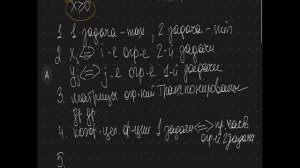 x≥0
1. 1 задача - max, 2 задача - min
2. xᵢ ⟺ i-е огр-е 2-й задачи
yⱼ ⟺ j-е огр-е 1-й задачи
3. матрицы огр-ний транспонированы
4. коэф. цел. ф-ции 1 задачи ⟺ пр. часть
огр-й 2 задачи
5.
A